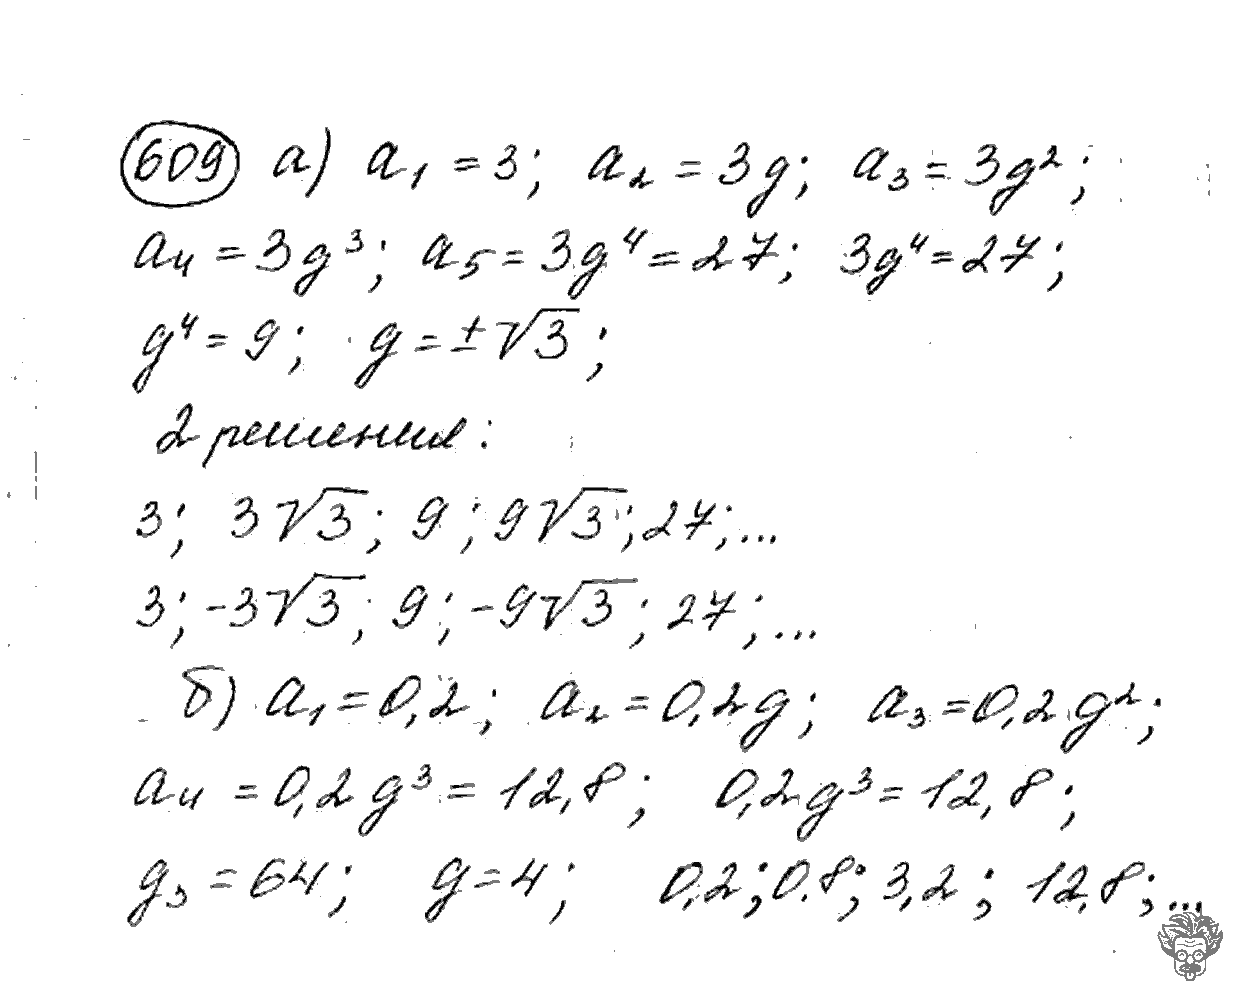 609 а) a₁ = 3; a₂ = 3g; a₃ = 3g²;
a₄ = 3g³; a₅ = 3g⁴ = 27; 3g⁴ = 27;
g⁴ = 9; g = ±√3;
2 решения:
3; 3√3; 9; 9√3; 27; ...
3; -3√3; 9; -9√3; 27; ...
б) a₁ = 0,2; a₂ = 0,2g; a₃ = 0,2g²;
a₄ = 0,2g³ = 12,8; 0,2g³ = 12,8;
g₃ = 64; g = 4; 0,2; 0.8; 3,2; 12,8; ...